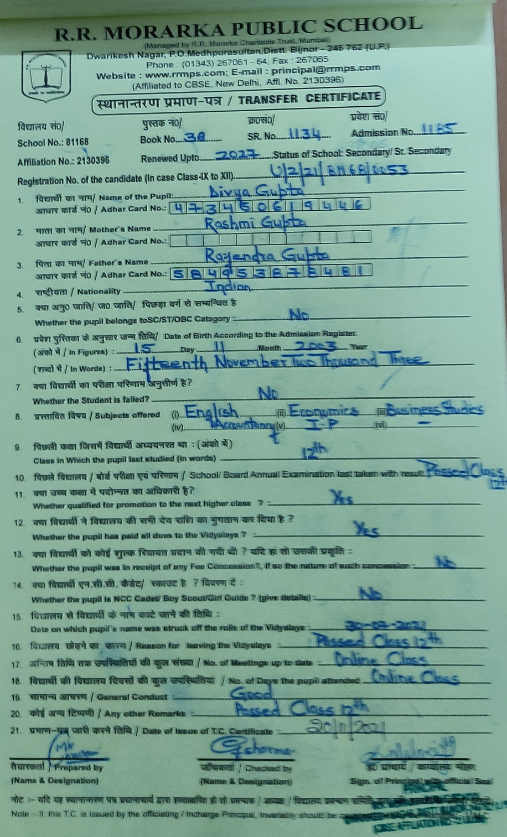 R.R. MORARKA PUBLIC SCHOOL
(Managed by R.R. Morarka Charitable Trust, Mumbai)
Dwarikesh Nagar, P.O. Medhpurasultan, Distt. Bijnor - 246 762 (U.P.)
Phone : (01343) 267061 - 64, Fax : 267065
Website : www.rrmps.com; E-mail : principal@rrmps.com
(Affiliated to CBSE, New Delhi, Affi. No. 2130396)
स्थानान्तरण प्रमाण-पत्र / TRANSFER CERTIFICATE
विद्यालय सं0/ पुस्तक न0/ क्र0सं0/ प्रवेश सं0/
School No.: 81168 Book No. 38 SR. No. 1134 Admission No. 1185
Affiliation No.: 2130396 Renewed Upto 2027 Status of School: Secondary/ Sr. Secondary
Registration No. of the candidate (in case Class-IX to XII)
1. विद्यार्थी का नाम/ Name of the Pupil: Divya Gupta
आधार कार्ड नं0 / Adhar Card No.:
2. माता का नाम/ Mother's Name Rashmi Gupta
आधार कार्ड नं0 / Adhar Card No.:
3. पिता का नाम/ Father's Name Rajendra Gupta
आधार कार्ड नं0 / Adhar Card No.:
4. राष्ट्रीयता / Nationality Indian
5. क्या अनु0 जाति/ ज0 जाति/ पिछड़ा वर्ग से सम्बन्धित है
Whether the pupil belongs to SC/ST/OBC Catagory: No
6. प्रवेश पुस्तिका के अनुसार जन्म तिथि/ Date of Birth According to the Admission Register.
(अंको में / In Figures) : 15 Day 11 Month 2003 Year
(शब्दों में / In Words) : Fifteenth November Two Thousand Three
7. क्या विद्यार्थी का परीक्षा परिणाम अनुत्तीर्ण है?
Whether the Student is failed? No
8. प्रस्तावित विषय / Subjects offered (i) English (ii) Economics (iii) Business Studies
(iv) Accountancy (v) I.P (vi) –
9. पिछली कक्षा जिसमें विद्यार्थी अध्ययनरत था : (अंकों में)
Class in Which the pupil last studied (in words) 12th
10. पिछले विद्यालय / बोर्ड परीक्षा एवं परिणाम / School/ Board Annual Examination last taken with result Passed Class 12th
11. क्या उच्च कक्षा में पदोन्नत का अधिकारी है?
Whether qualified for promotion to the next higher class ? : Yes
12. क्या विद्यार्थी ने विद्यालय की सभी देय राशि का भुगतान कर दिया है ?
Whether the pupil has paid all dues to the Vidyalaya ? : Yes
13. क्या विद्यार्थी को कोई शुल्क रियायत प्रदान की गयी थी ? यदि हां तो उसकी प्रकृति :
Whether the pupil was in receipt of any Fee Concession?, if so the nature of such concession : No
14. क्या विद्यार्थी एन.सी.सी. कैडेट/ स्काउट है ? विवरण दें :
Whether the pupil is NCC Cadet/ Boy Scout/Girl Guide ? (give details) : No
15. विद्यालय से विद्यार्थी के नाम काटे जाने की तिथि :
Date on which pupil's name was struck off the rolls of the Vidyalaya 30-07-2021
16. विद्यालय छोड़ने का कारण / Reason for leaving the Vidyalaya Passed Class 12th
17. अन्तिम तिथि तक उपस्थितियों की कुल संख्या / No. of Meetings up to date : Online Class
18. विद्यार्थी की विद्यालय दिवसों की कुल उपस्थितियां / No. of Days the pupil attended Online Class
19. सामान्य आचरण / General Conduct : Good
20. कोई अन्य टिप्पणी / Any other Remarks : Passed Class 12th
21. प्रमाण-पत्र जारी करने तिथि / Date of issue of T.C. Certificate : 20/11/2021
तैयारकर्ता / Prepared by जाँचकर्ता / Checked by
(Name & Designation) (Name & Designation) Sign. of Principal with official Seal
Note :- If this T.C. is issued by the affiliating / Incharge Principal,